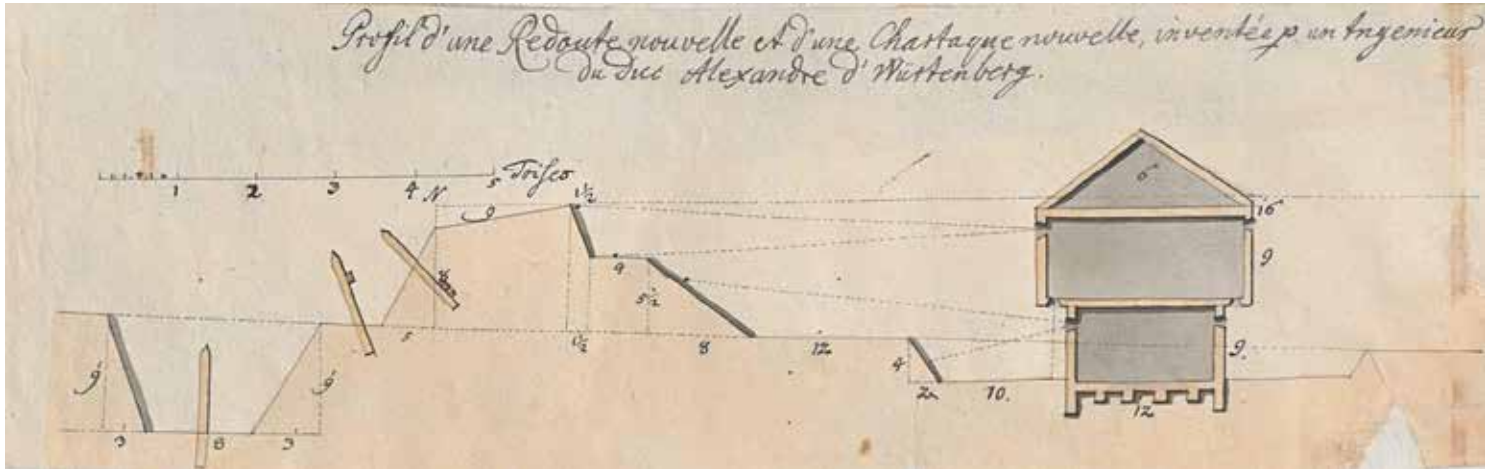 Profil d'une Redoute nouvelle et d'une Chartaque nouvelle, inventée p. un Ingenieur
du Duc Alexandre d'Wurtenberg.
1 2 3 4 5 Toises
N 9 1½
6
16
9
9
5½
5 1½ 8 12
4
9
9 9
2 10. 12
3 8 3